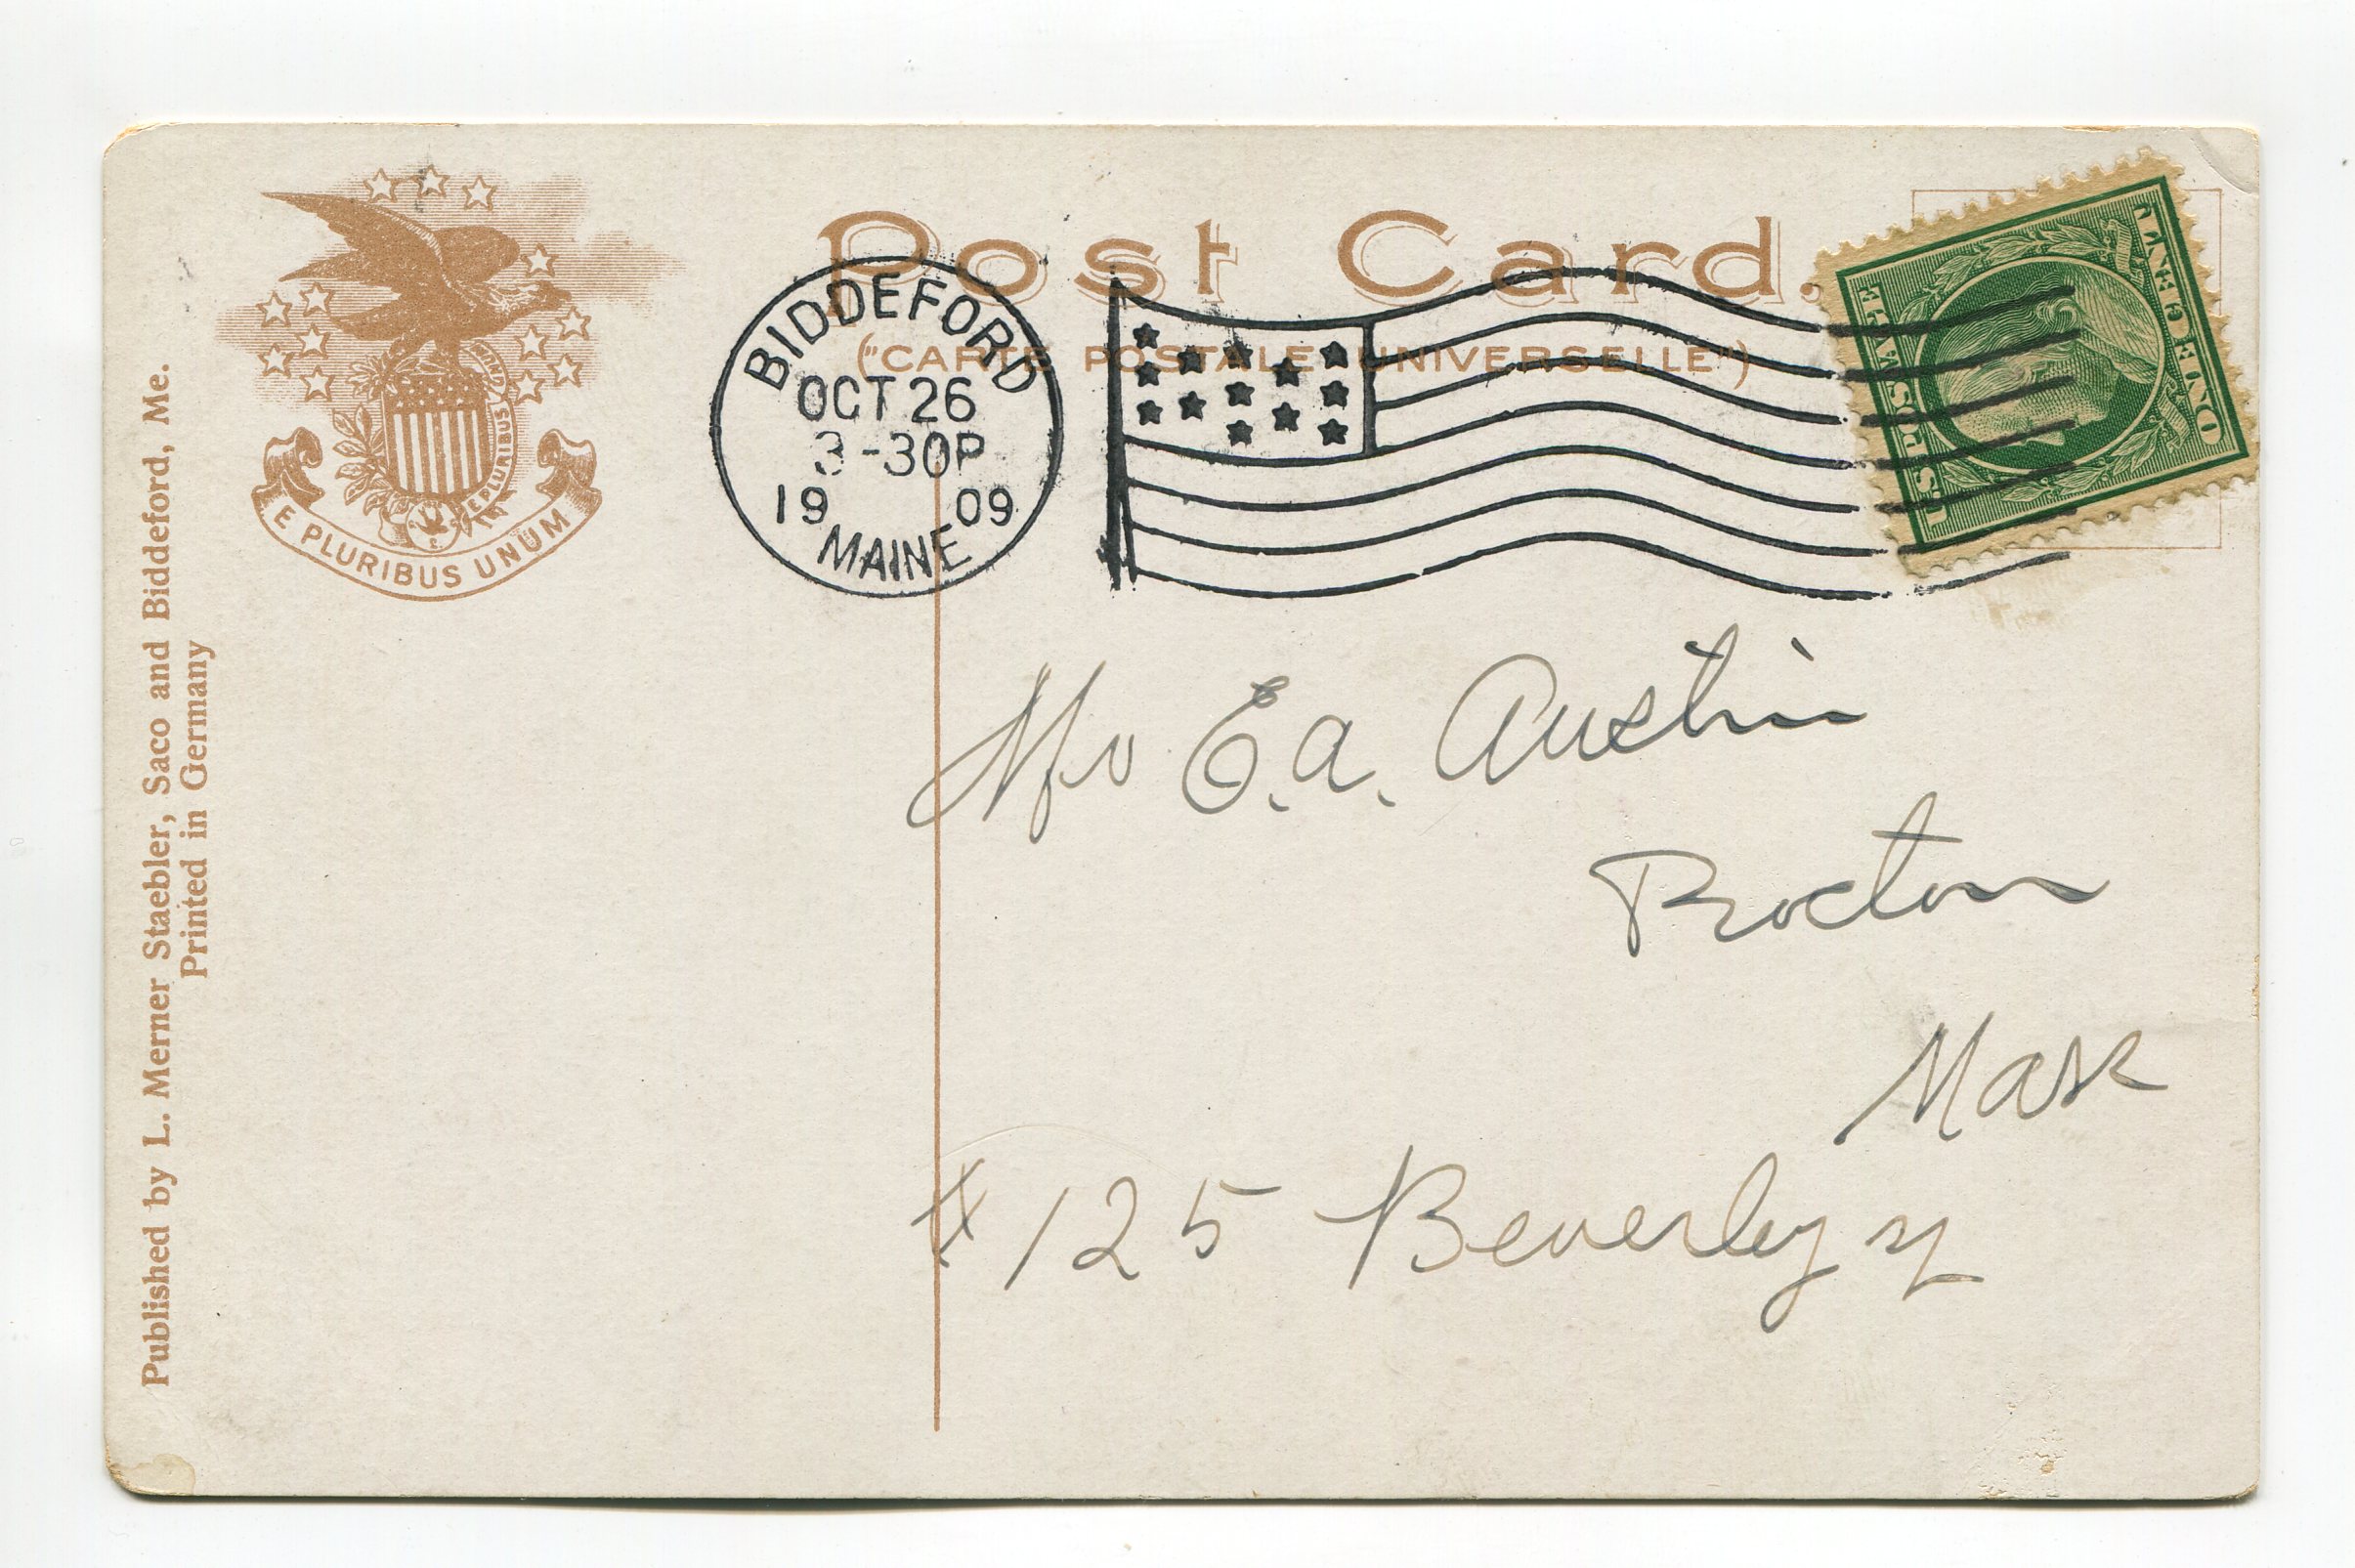 Post Card.
("CARTE POSTALE UNIVERSELLE")
E PLURIBUS UNUM
E PLURIBUS UNUM
BIDDEFORD
OCT 26
3-30P
19 09
MAINE
U.S. POSTAGE
ONE CENT
Published by L. Merner Staebler, Saco and Biddeford, Me.
Printed in Germany
E. A. Austin
Procton
Mass
#125 Beverly